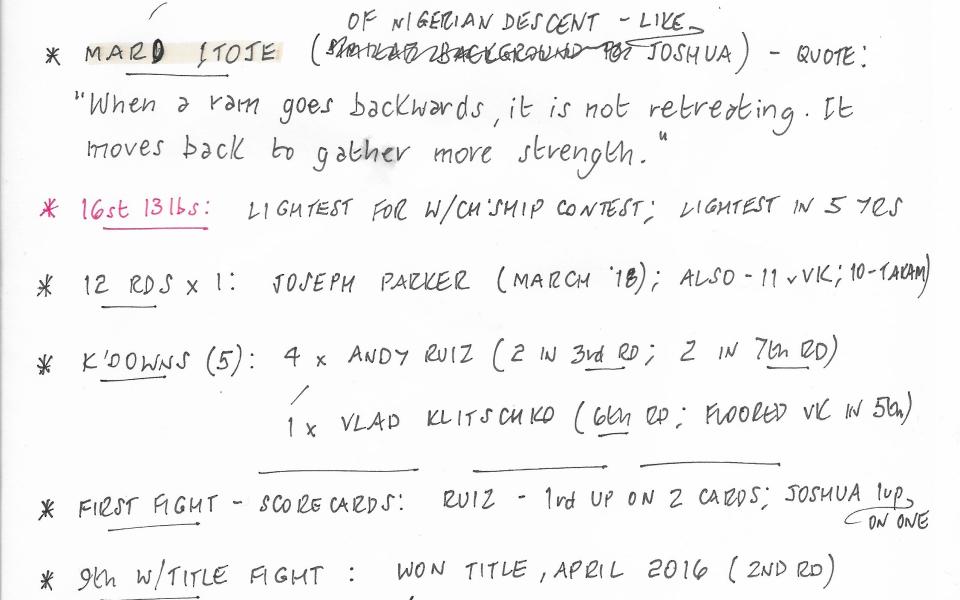 OF NIGERIAN DESCENT - LIKE
* MARO ITOJE ( JOSHUA) - QUOTE:
"When a ram goes backwards, it is not retreating. It
moves back to gather more strength."
* 16st 13lbs: LIGHTEST FOR W/CH'SHIP CONTEST; LIGHTEST IN 5 YRS
* 12 RDS x 1: JOSEPH PARKER (MARCH '18); ALSO - 11 v VK; 10-TAKAM)
* K'DOWNS (5): 4 x ANDY RUIZ (2 IN 3rd RD; 2 IN 7th RD)
1 x VLAD KLITSCHKO (6th RD; FLOORED VK IN 5th)
* FIRST FIGHT - SCORECARDS: RUIZ - 1rd UP ON 2 CARDS; JOSHUA 1up
ON ONE
* 9th W/TITLE FIGHT : WON TITLE, APRIL 2016 (2ND RD)